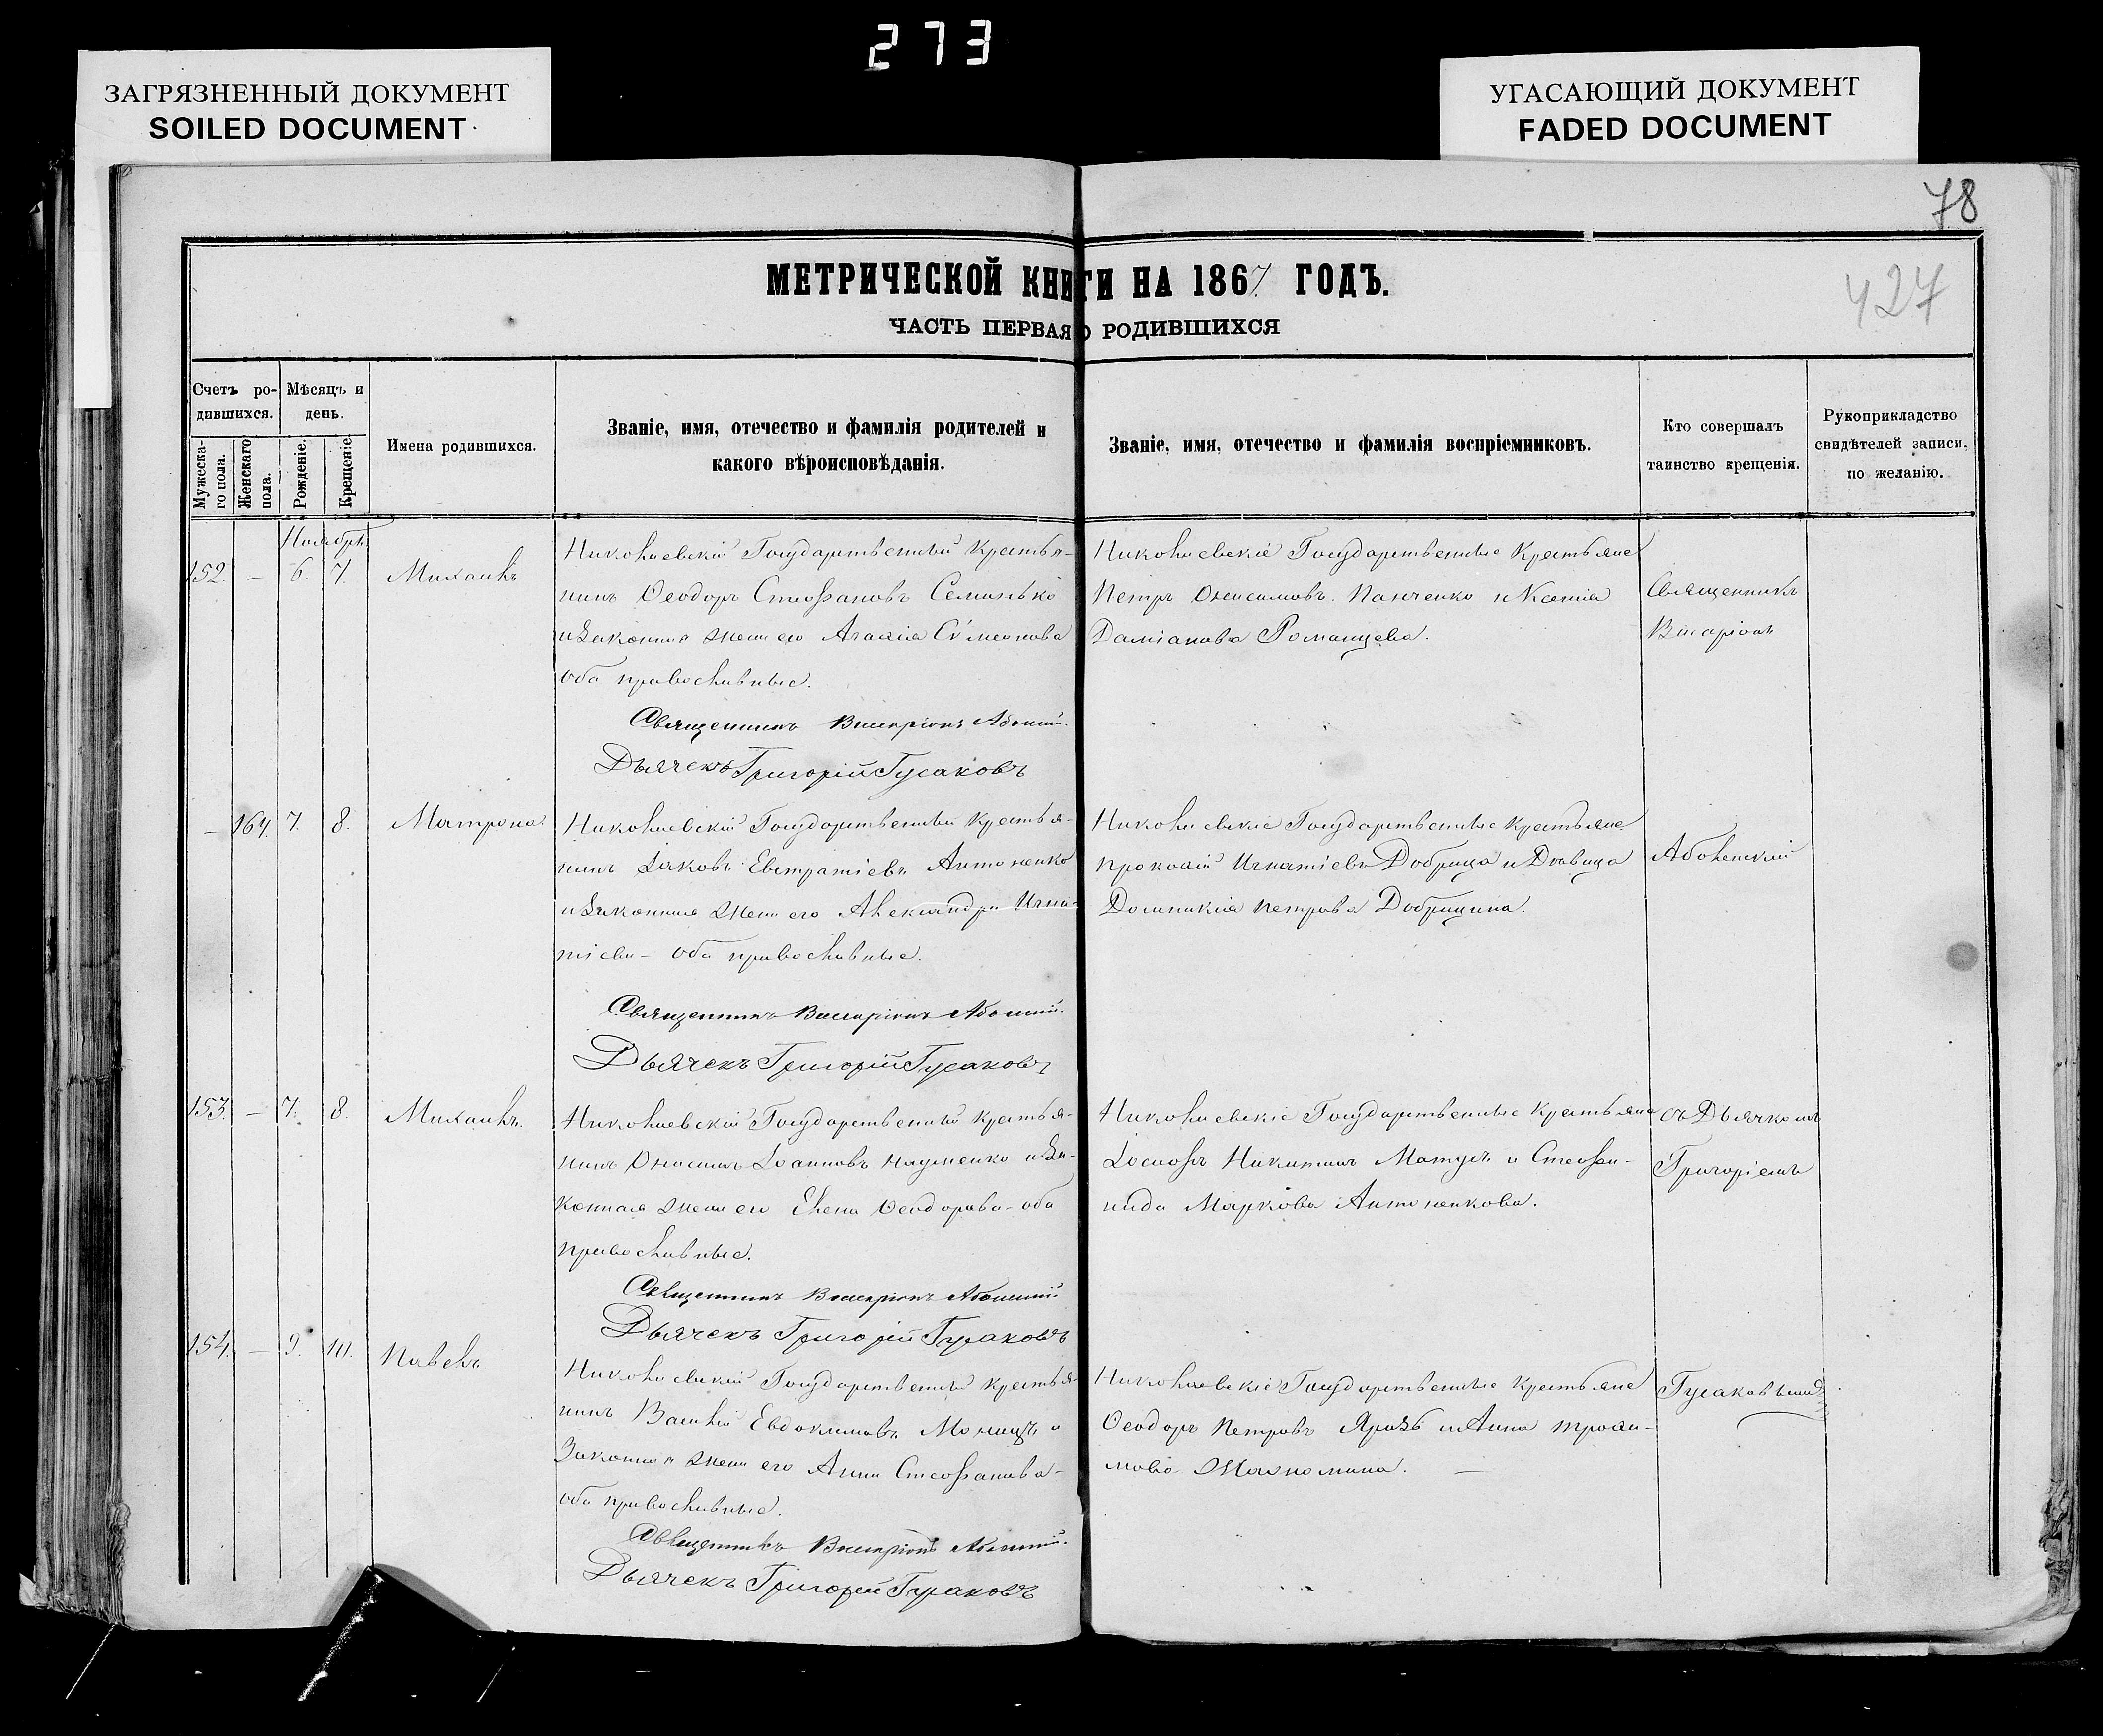 273
ЗАГРЯЗНЕННЫЙ ДОКУМЕНТ
SOILED DOCUMENT
УГАСАЮЩИЙ ДОКУМЕНТ
FADED DOCUMENT
78
427
МЕТРИЧЕСКОЙ КНИГИ НА 1867 ГОДЪ.
ЧАСТЬ ПЕРВАЯ О РОДИВШИХСЯ
Счетъ ро-
дившихся.
Мужеска-
го пола.
Женскаго
пола.
Мѣсяцъ и
день.
Рожденіе.
Крещеніе
Имена родившихся.
Званіе, имя, отечество и фамилія родителей и
какого вѣроисповѣданія.
Званіе, имя, отечество и фамилія воспріемниковъ.
Кто совершалъ
таинство крещенія.
Рукоприкладство
свидѣтелей записи,
по желанію.
Ноября
152. — 6. 7. Михаилъ
Николаевскій Государственный Крестья-
нинъ Ѳеодоръ Стефановъ Семинько
и Законная жена его Агафія Сѵмеонова
оба православные.
Священникъ Виссаріонъ
Дьячекъ Григорій Гусаковъ
Николаевскіе Государственные Крестьяне
Петръ Онисимовъ Панченко и Ксенія
Даміанова Романцева.
Священникъ
Висаріонъ
— 164. 7. 8. Матрона
Николаевскій Государственный Крестья-
нинъ Іяковъ Евстратіевъ Антоненко
и Законная жена его Александра Игна-
тіева – оба православные.
Священникъ Виссаріонъ
Дьячекъ Григорій Гусаковъ
Николаевскіе Государственные Крестьяне
Прокофій Игнатіевъ Добрица и Дѣвица
Домникія Петрова Добрицина.
153. — 7. 8. Михаилъ.
Николаевскій Государственный Крестья-
нинъ Онисимъ Іоанновъ Науменко и За-
конная жена его Елена Ѳеодорова – оба
православные.
Священникъ Виссаріонъ
Дьячекъ Григорій Гусаковъ
Николаевскіе Государственные Крестьяне
Іосифъ Никитинъ и Стефа-
нида Маркова Антоненкова.
съ Дьячкомъ
Григоріемъ
154. — 9. 10. Павелъ
Николаевскій Государственный Крестья-
нинъ Василій Евдокимовъ и
Законная жена его Анна Стефанова –
оба православные.
Священникъ Виссаріонъ
Дьячекъ Григорій Гусаковъ
Николаевскіе Государственные Крестьяне
Ѳеодоръ Петровъ и Анна Трофи-
мова
Гусаковымъ